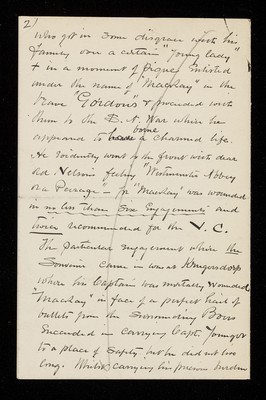 2)
who got in some disgrace with his
family over a certain "young lady"
& in a moment of pique enlisted
under the name of "MacKay" in the
brave "Gordons" & proceeded with
them to the S.A. War where he
appeared to have borne a charmed life.
He evidently went to the front with dear
old Nelson's feeling "Westminster Abbey
or a Peerage" for "MacKay" was wounded
in no less than Six Engagements and
twice recommended for the V.C.
The particular engagement where the
Souvenir came in was at Krugersdorp
where his Captain was mortally wounded
"MacKay" in face of a perfect hail of
bullets from the surrounding Boers
succeeded in carrying Capt. Younger
to a place of safety but he did not live
long. Whilst carrying his precious burden